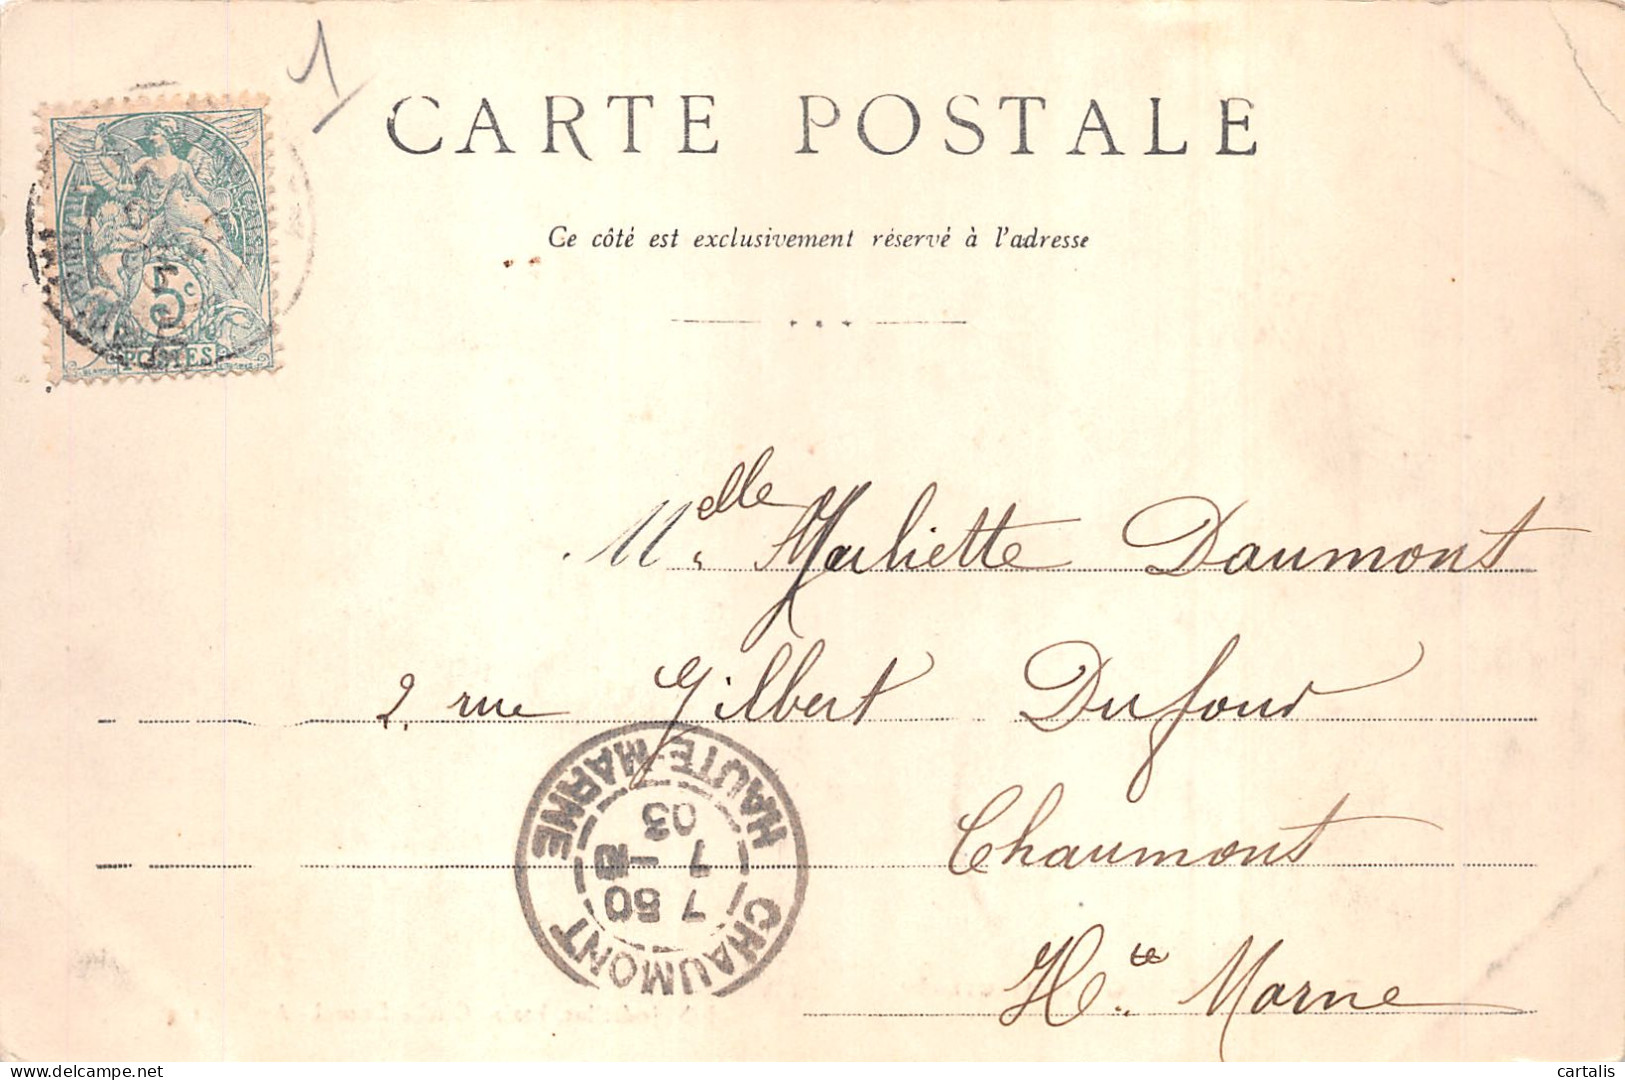 1
CARTE POSTALE
Ce côté est exclusivement réservé à l'adresse
RÉPUBLIQUE FRANÇAISE
5c
POSTES
Melle Marliette Daumont
2, rue Gilbert Dufour
Chaumont
Hte Marne
CHAUMONT
HAUTE-MARNE
7 50
7 - 10
03
cartalis